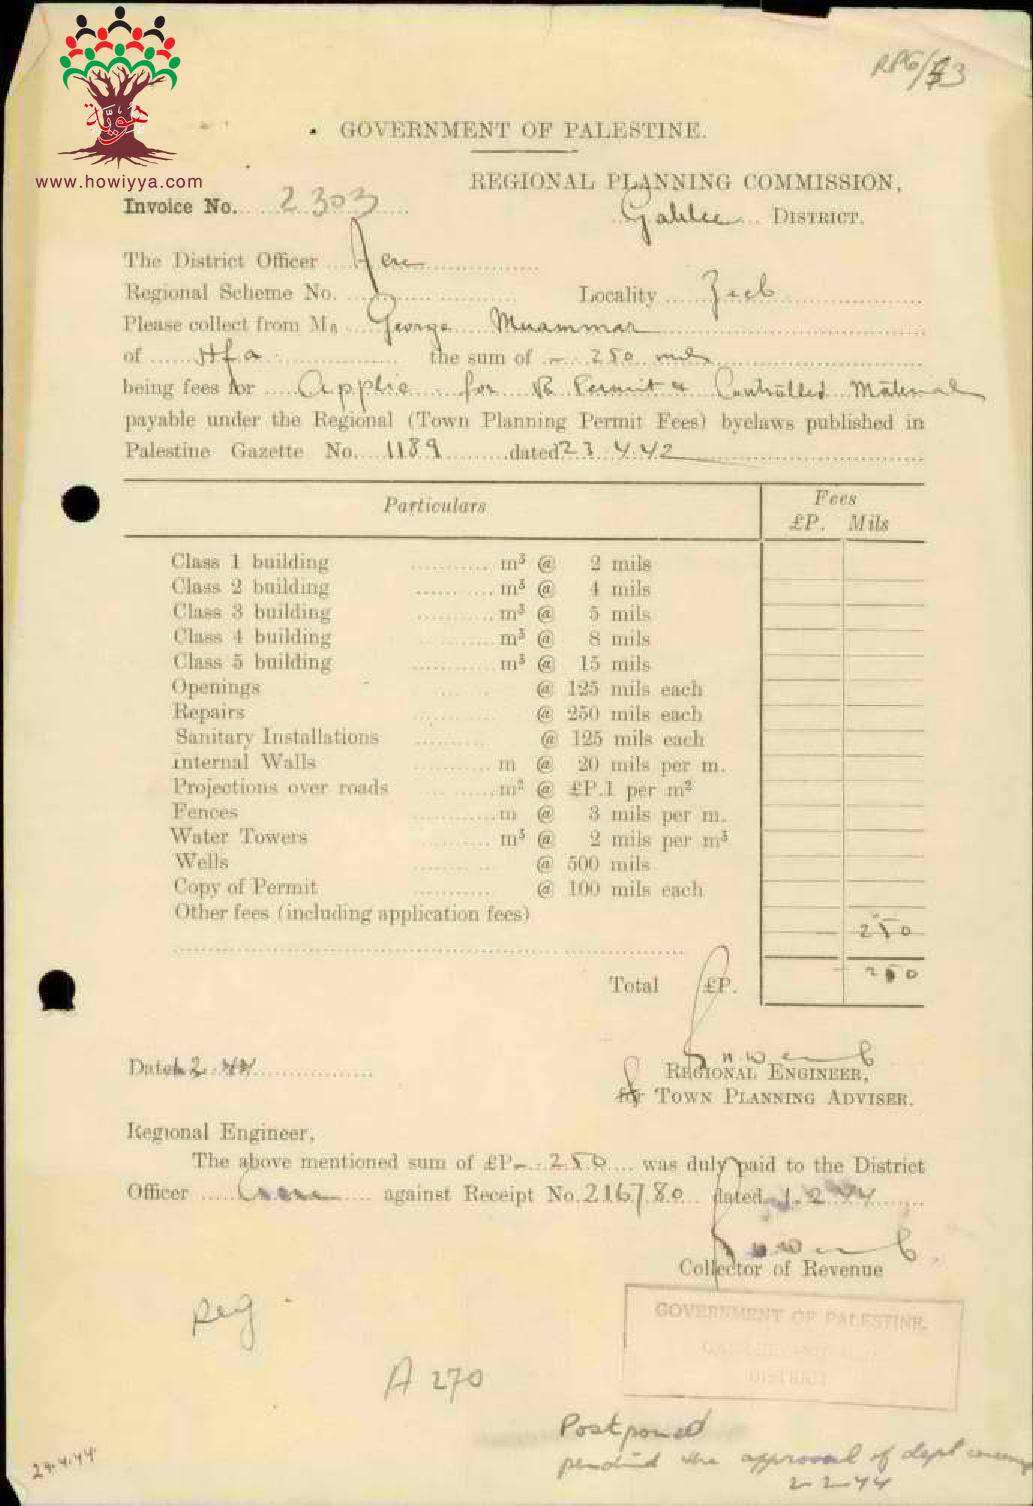 RPG/53
هوية
www.howiyya.com
GOVERNMENT OF PALESTINE.
REGIONAL PLANNING COMMISSION,
Invoice No. 2303
Galilee DISTRICT.
The District Officer Acre
Regional Scheme No. Locality Zeeb
Please collect from Mr George Muammar
of Hfa the sum of — 250 mils
being fees for Applic for B. Permit & Controlled Material
payable under the Regional (Town Planning Permit Fees) byelaws published in
Palestine Gazette No. 1189 dated 23.4.42
Particulars Fees
£P. Mils
Class 1 building m³ @ 2 mils
Class 2 building m³ @ 4 mils
Class 3 building m³ @ 5 mils
Class 4 building m³ @ 8 mils
Class 5 building m³ @ 15 mils
Openings @ 125 mils each
Repairs @ 250 mils each
Sanitary Installations @ 125 mils each
Internal Walls m @ 20 mils per m.
Projections over roads m² @ £P.1 per m²
Fences m @ 3 mils per m.
Water Towers m³ @ 2 mils per m³
Wells @ 500 mils
Copy of Permit @ 100 mils each
Other fees (including application fees) 250
Total £P. - 250
Date 1.2.44
REGIONAL ENGINEER,
for TOWN PLANNING ADVISER.
Regional Engineer,
The above mentioned sum of £P—.250 was duly paid to the District
Officer Acre against Receipt No. 216780 dated 1.2.44
Collector of Revenue
GOVERNMENT OF PALESTINE.
DISTRICT
Reg
A 270
Postponed
pending the approval of dept
2-2-44
29.4.44